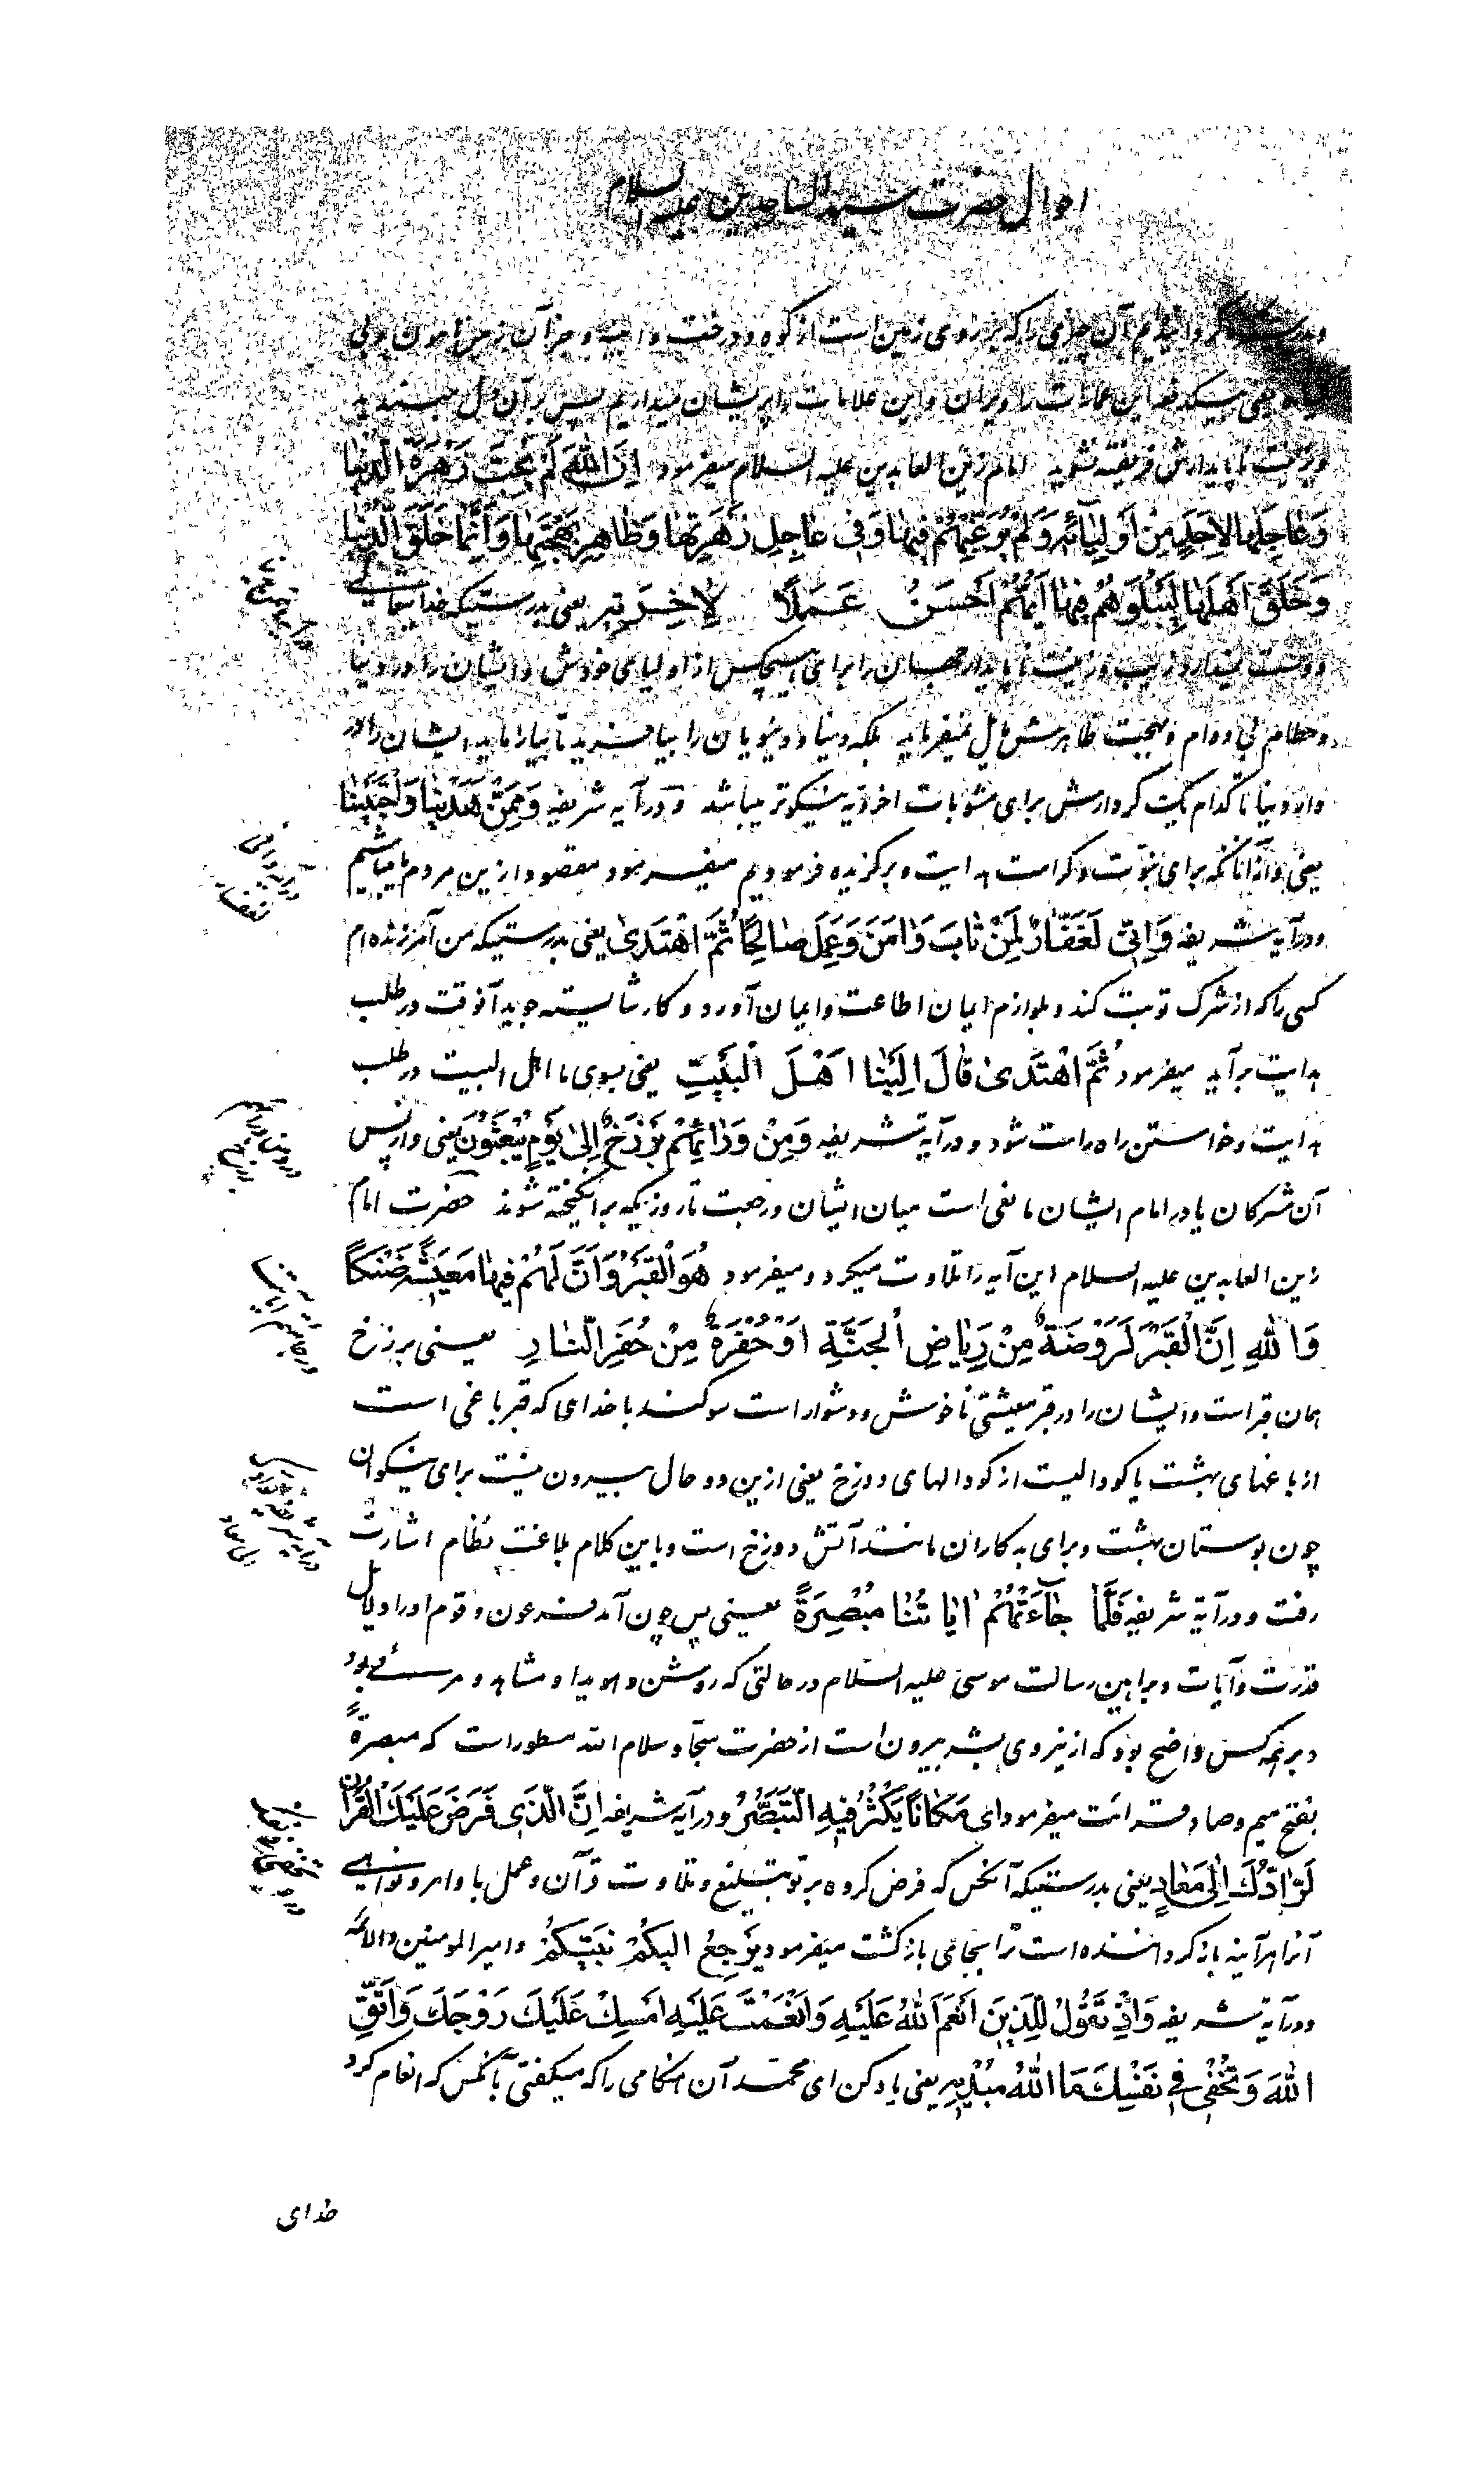 احوال حضرت سید الساجدین علیه السلام
آن چیزی را که بر روی زمین است از کوه و درخت و
این عمارات را ویران و این علامات را پریشان میداریم پس بر آن دل مبندید
فریفته نشوید امام زین العابدین علیه السلام میفرمود اِنَّ اللهَ لَمْ یُحِبَّ زَهْرَةَ الدُّنْیا
وَعاجِلَها لِاَحَدٍ مِنْ اَوْلِیآئِهِ وَلَمْ یُرَغِّبْهُمْ فیها وَفی عاجِلِ زَهْرَتِها وَظاهِرِ بَهْجَتِها وَاَنَّما خَلَقَ الدُّنْیا
وَخَلَقَ اَهْلَها لِیَبْلُوَهُمْ فیها اَیُّهُمْ اَحْسَنُ عَمَلًا لِاخِرَتِهِ یعنی بدرستیکه خدا سبحانه
دوست نمیدارد زیب و زینت ناپایدار جهان را برای هیچکس از اولیای خودش و ایشان را در دنیا
و حطام بی دوام و بهجت ظاهرش مایل نمیفرماید بلکه دنیا و دنیویان را بیافرید تا بیازماید ایشان را در
دنیا تا کدام یک کردارش برای مثوبات اخرویه نیکوتر میباشد و در آیه شریفه وَمِمَّنْ هَدَیْنا وَاجْتَبَیْنا
یعنی و از آنانکه برای نبوت و کرامت هدایت و برگزیده فرمودیم میفرمود مقصود ازین مردم ما میباشیم
و در آیه شریفه وَاِنّی لَغَفّارٌ لِمَنْ تابَ وَامَنَ وَعَمِلَ صالِحًا ثُمَّ اهْتَدی یعنی بدرستیکه من آمرزنده ام
کسی را که از شرک توبت کند و بلوازم ایمان اطاعت و ایمان آورد و کار شایسته جوید آنوقت در طلب
هدایت برآید میفرمود ثُمَّ اهْتَدی قالَ اِلَیْنا اَهْلَ الْبَیْتِ یعنی بسوی ما اهل البیت در طلب
هدایت و خواستن راه راست شود و در آیه شریفه وَمِنْ وَرائِهِمْ بَرْزَخٌ اِلی یَوْمِ یُبْعَثُونَ یعنی و از پس
آن مشرکان یا در امام ایشان مانعی است میان ایشان و رجعت تا روزیکه برانگیخته شوند حضرت امام
زین العابدین علیه السلام این آیه را تلاوت میکرد و میفرمود هُوَ الْقَبْرُ وَاَنَّ لَهُمْ فیها مَعیشَةً ضَنْکًا
وَاللهِ اِنَّ الْقَبْرَ لَرَوْضَةٌ مِنْ رِیاضِ الْجَنَّةِ اَوْ حُفْرَةٌ مِنْ حُفَرِ النّارِ یعنی برزخ
همان قبر است و ایشان را در قبر معیشتی ناخوش و دشوار است سوگند با خدای که قبر باغی است
از باغهای بهشت یا گودالیست از گودالهای دوزخ یعنی ازین دو حال بیرون نیست برای نیکوان
چون بوستان بهشت و برای بدکاران مانند آتش دوزخ است و باین کلام بلاغت نظام اشارت
رفت و در آیه شریفه فَلَمّا جآءَتْهُمْ ایاتُنا مُبْصِرَةً یعنی پس چون آمد فرعون و قوم او را دلایل
قدرت و آیات و براهین رسالت موسی علیه السلام در حالتی که روشن و هویدا و مشاهد و مرئی بود
و بر همه کس واضح بود که از نیروی بشر بیرون است از حضرت سجاد سلام الله مسطور است که مبصرةً
بفتح میم و صاد قرائت میفرمود ای مَکانًا یَکْثُرُ فیهِ التَّبَصُّرُ و در آیه شریفه اِنَّ الَّذی فَرَضَ عَلَیْكَ الْقُرْانَ
لَرادُّكَ اِلی مَعادٍ یعنی بدرستیکه آنکس که فرض کرده بر تو تبلیغ و تلاوت قرآن و عمل باوامر و نواهی
آنرا هرآینه باز گرداننده است ترا بجای بازگشت میفرمود یَرْجِعُ اِلَیْکُمْ نَبِیُّکُمْ و امیر المومنین والائمه
و در آیه شریفه وَاِذْ تَقُولُ لِلَّذینَ اَنْعَمَ اللهُ عَلَیْهِ وَاَنْعَمْتَ عَلَیْهِ اَمْسِكْ عَلَیْكَ زَوْجَكَ وَاتَّقِ
اللهَ وَتُخْفی فی نَفْسِكَ مَا اللهُ مُبْدیهِ یعنی یاد کن ای محمد آن هنگامی را که میگفتی بآنکس که انعام کرد
خدای